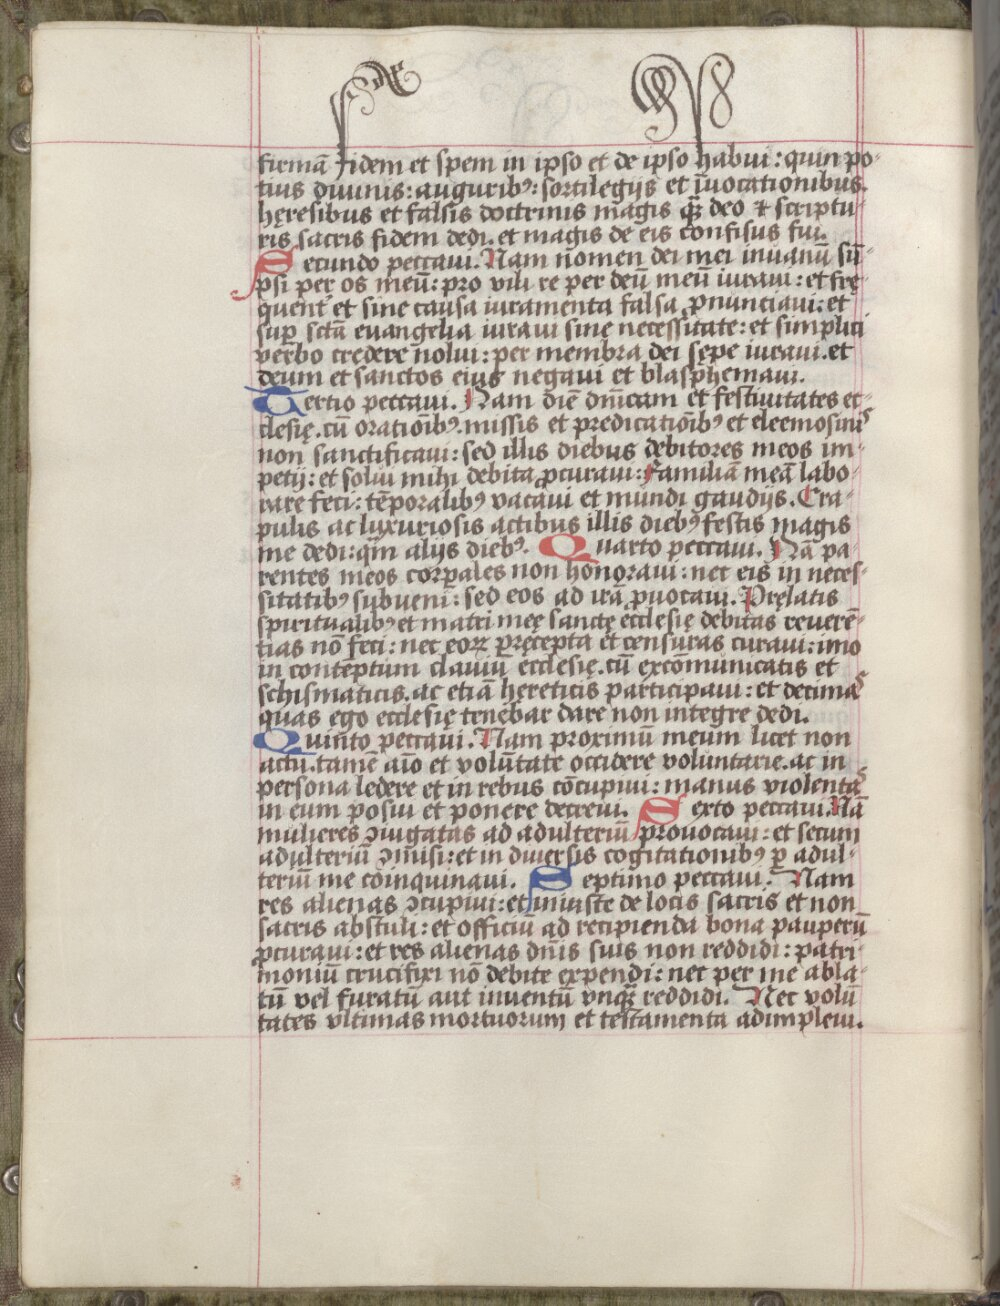 firmā fidem et spem in ipso et de ipso habui: quin po-
tius diuinis: auguribꝰ: sortilegijs et īuocationibus.
hęresibus et falsis doctrinis magis quā deo & scriptu-
ris sacris fidem dedi. et magis de eis cōfisus fui.
Secundo peccaui. Nam nomen dei mei inuanū sū-
psi per os meū: pro vili re per deū meū iuraui: et frę-
quent᷑ et sine causa iuramenta falsa ꝓnunciaui: et
suꝑ sctā euangelia iuraui sine necessitate: et simplici
verbo credere nolui: per membra dei sępe iuraui. et
deum et sanctos eius negaui et blasphemaui.
Tertio peccaui. Nam diē dn̄icam et festiuitates ec-
clesię. cū oratiōibꝰ. missis et predicatiōibꝰ et eleemosinis
non sanctificaui: sed illis diebus debitores meos im-
petij: et solui mihi debita ꝓcuraui: Familiā meā labo-
rare feci: tēporalibꝰ vacaui et mundi gaudijs. Cra-
pulis ac luxuriosis actibus illis diebꝰ festis magis
me dedi: qm̄ alijs diebꝰ. Quarto peccaui. Nā pa-
rentes meos corꝑales non honoraui: nec eis in neces-
sitatibꝰ subueni: sed eos ad irā ꝓuocaui. Pręlatis
spiritualibꝰ et matri meę sanctę ecclesię debitas reuerē-
tias nō feci: nec eoꝝ pręcepta et censuras curaui: imo
in contēptum clauiū ecclesię. cū excomūnicatis et
schismaticis. ac etiā hereticis participaui: et decimas
quas ego ecclesię tenebar dare non integre dedi.
Quinto peccaui. Nam proximū meum licet non
actu. tamē aīo et volūtate occidere voluntarie. ac in
persona ledere et in rebus cōcupiui: manus violentas
in eum posui et ponere decreui. Sexto peccaui. Nā
mulieres ꝯiugatas ad adulteriū prouocaui: et secum
adulteriū ꝯmisi: et in diuersis cogitationibꝰ ꝑ adul-
teriū me coinquinaui. Septimo peccaui. Nam
res alienas ꝯcupiui: et iniuste de locis sacris et non
sacris abstuli: et officiū ad recipienda bona pauperū
ꝓcuraui: et res alienas dn̄is suis non reddidi: patri-
moniū crucifixi nō debite expendi: nec per me abla-
tū vel furatū aut inuentū vnquā reddidi. Nec volū
tates vltimas mortuorum et testamenta adimpleui.